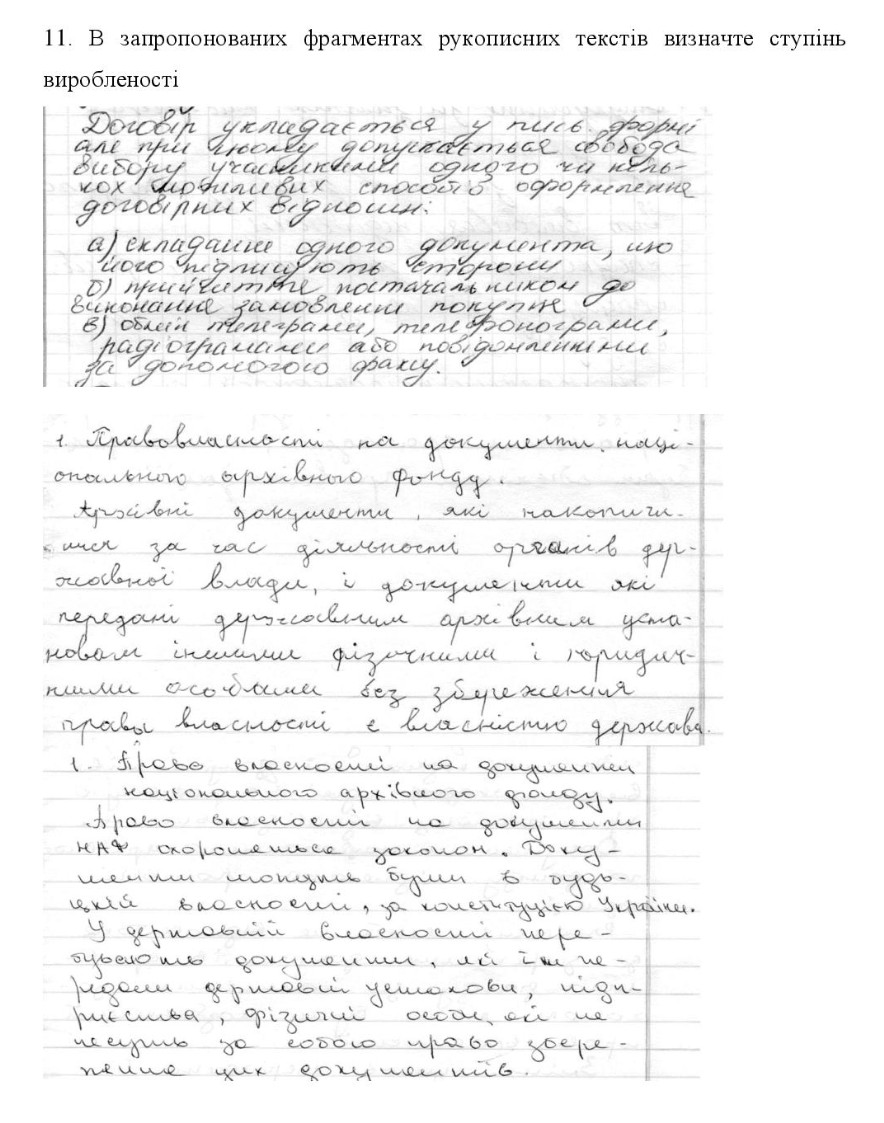 11. В запропонованих фрагментах рукописних текстів визначте ступінь
виробленості
Договір укладається у пись. формі
але при цьому допускається свобода
вибору учасниками одного чи кіль-
кох можливих способів оформлення
договірних відношн:
а) складання одного документа, що
його підписують сторони
б) прийняття постачальником до
виконання замовлення покупця
в) обмін телеграми, телефонограми,
радіограмами або повідомленнями
за допомогою факсу.
1. Правовласності на документи наці-
онального архівного фонду.
Архівні документи, які накопичи-
лися за час діяльності органів дер-
жавної влади, і документи які
передані державним архівним уста-
новам іншими фізичними і юридич-
ними особами без збереження
права власності є власністю держава.
1. Право власності на документи
національного архівного фонду.
Право власності на документи
НАФ охороняється закопон. Доку-
менти можуть бути в будь-
якій власності, за конституцією України.
У державній власності пере-
бувають документи, які їм пе-
редали державні установи, підп-
риємства, фізичні особи, які не
несуть за собою право збере-
ження цих документів.